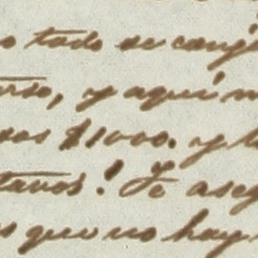 o todo se conji
urso, y aqui n
sos $1000. y l
tavos! Te aseg
s que no hay